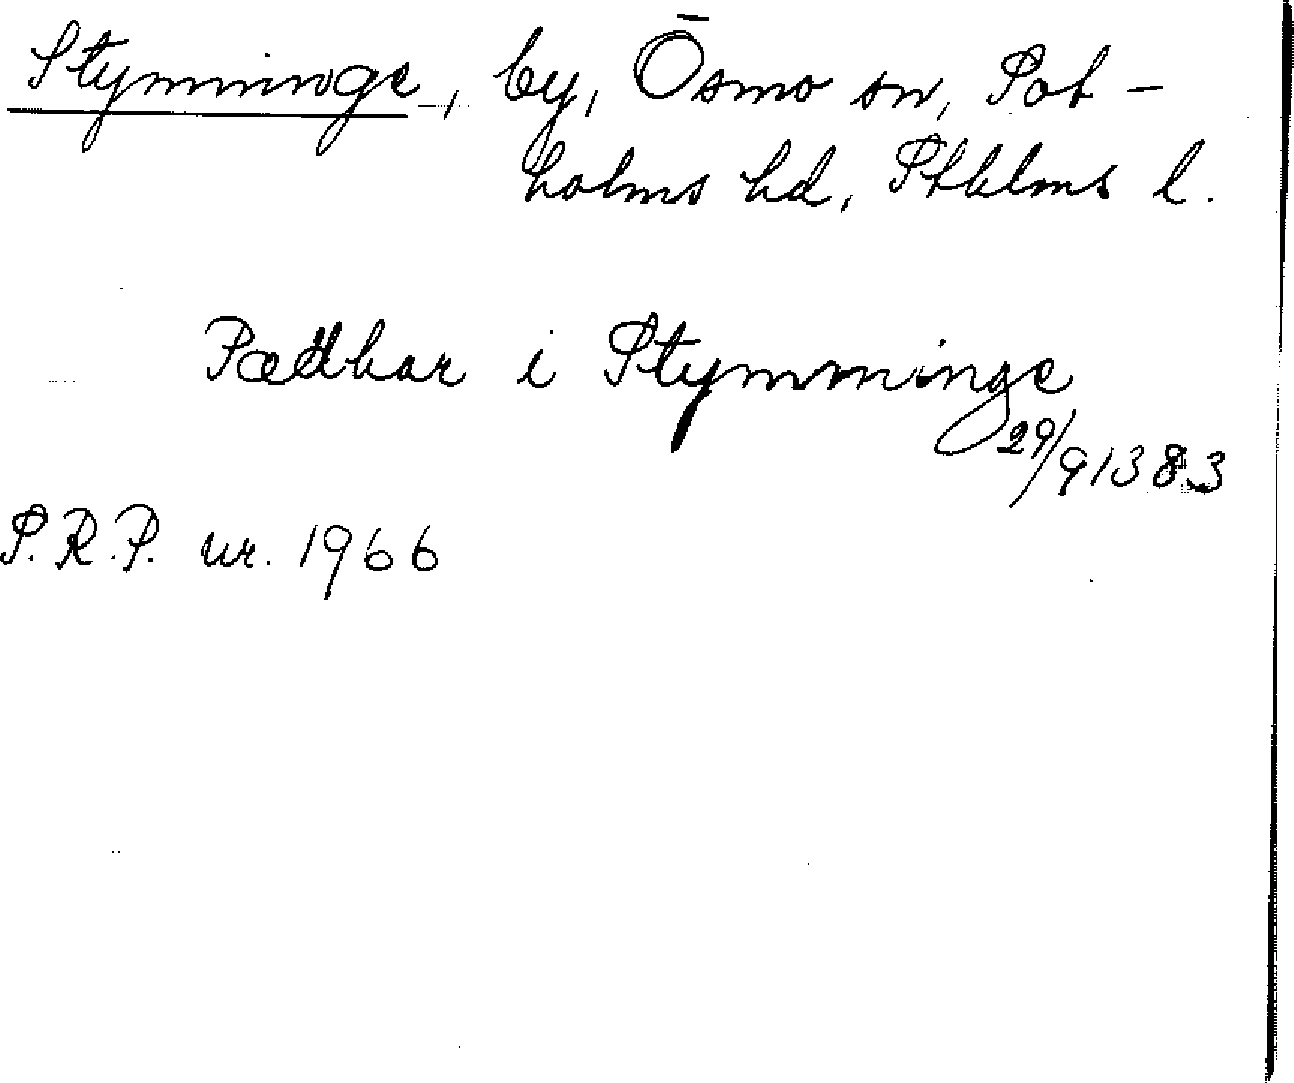 Stymminge, by, Ösmo sn, Sot-
holms hd, Sthlms l.
Pædhar i Stymminge
29/9 1383
S.R.P. nr. 1966